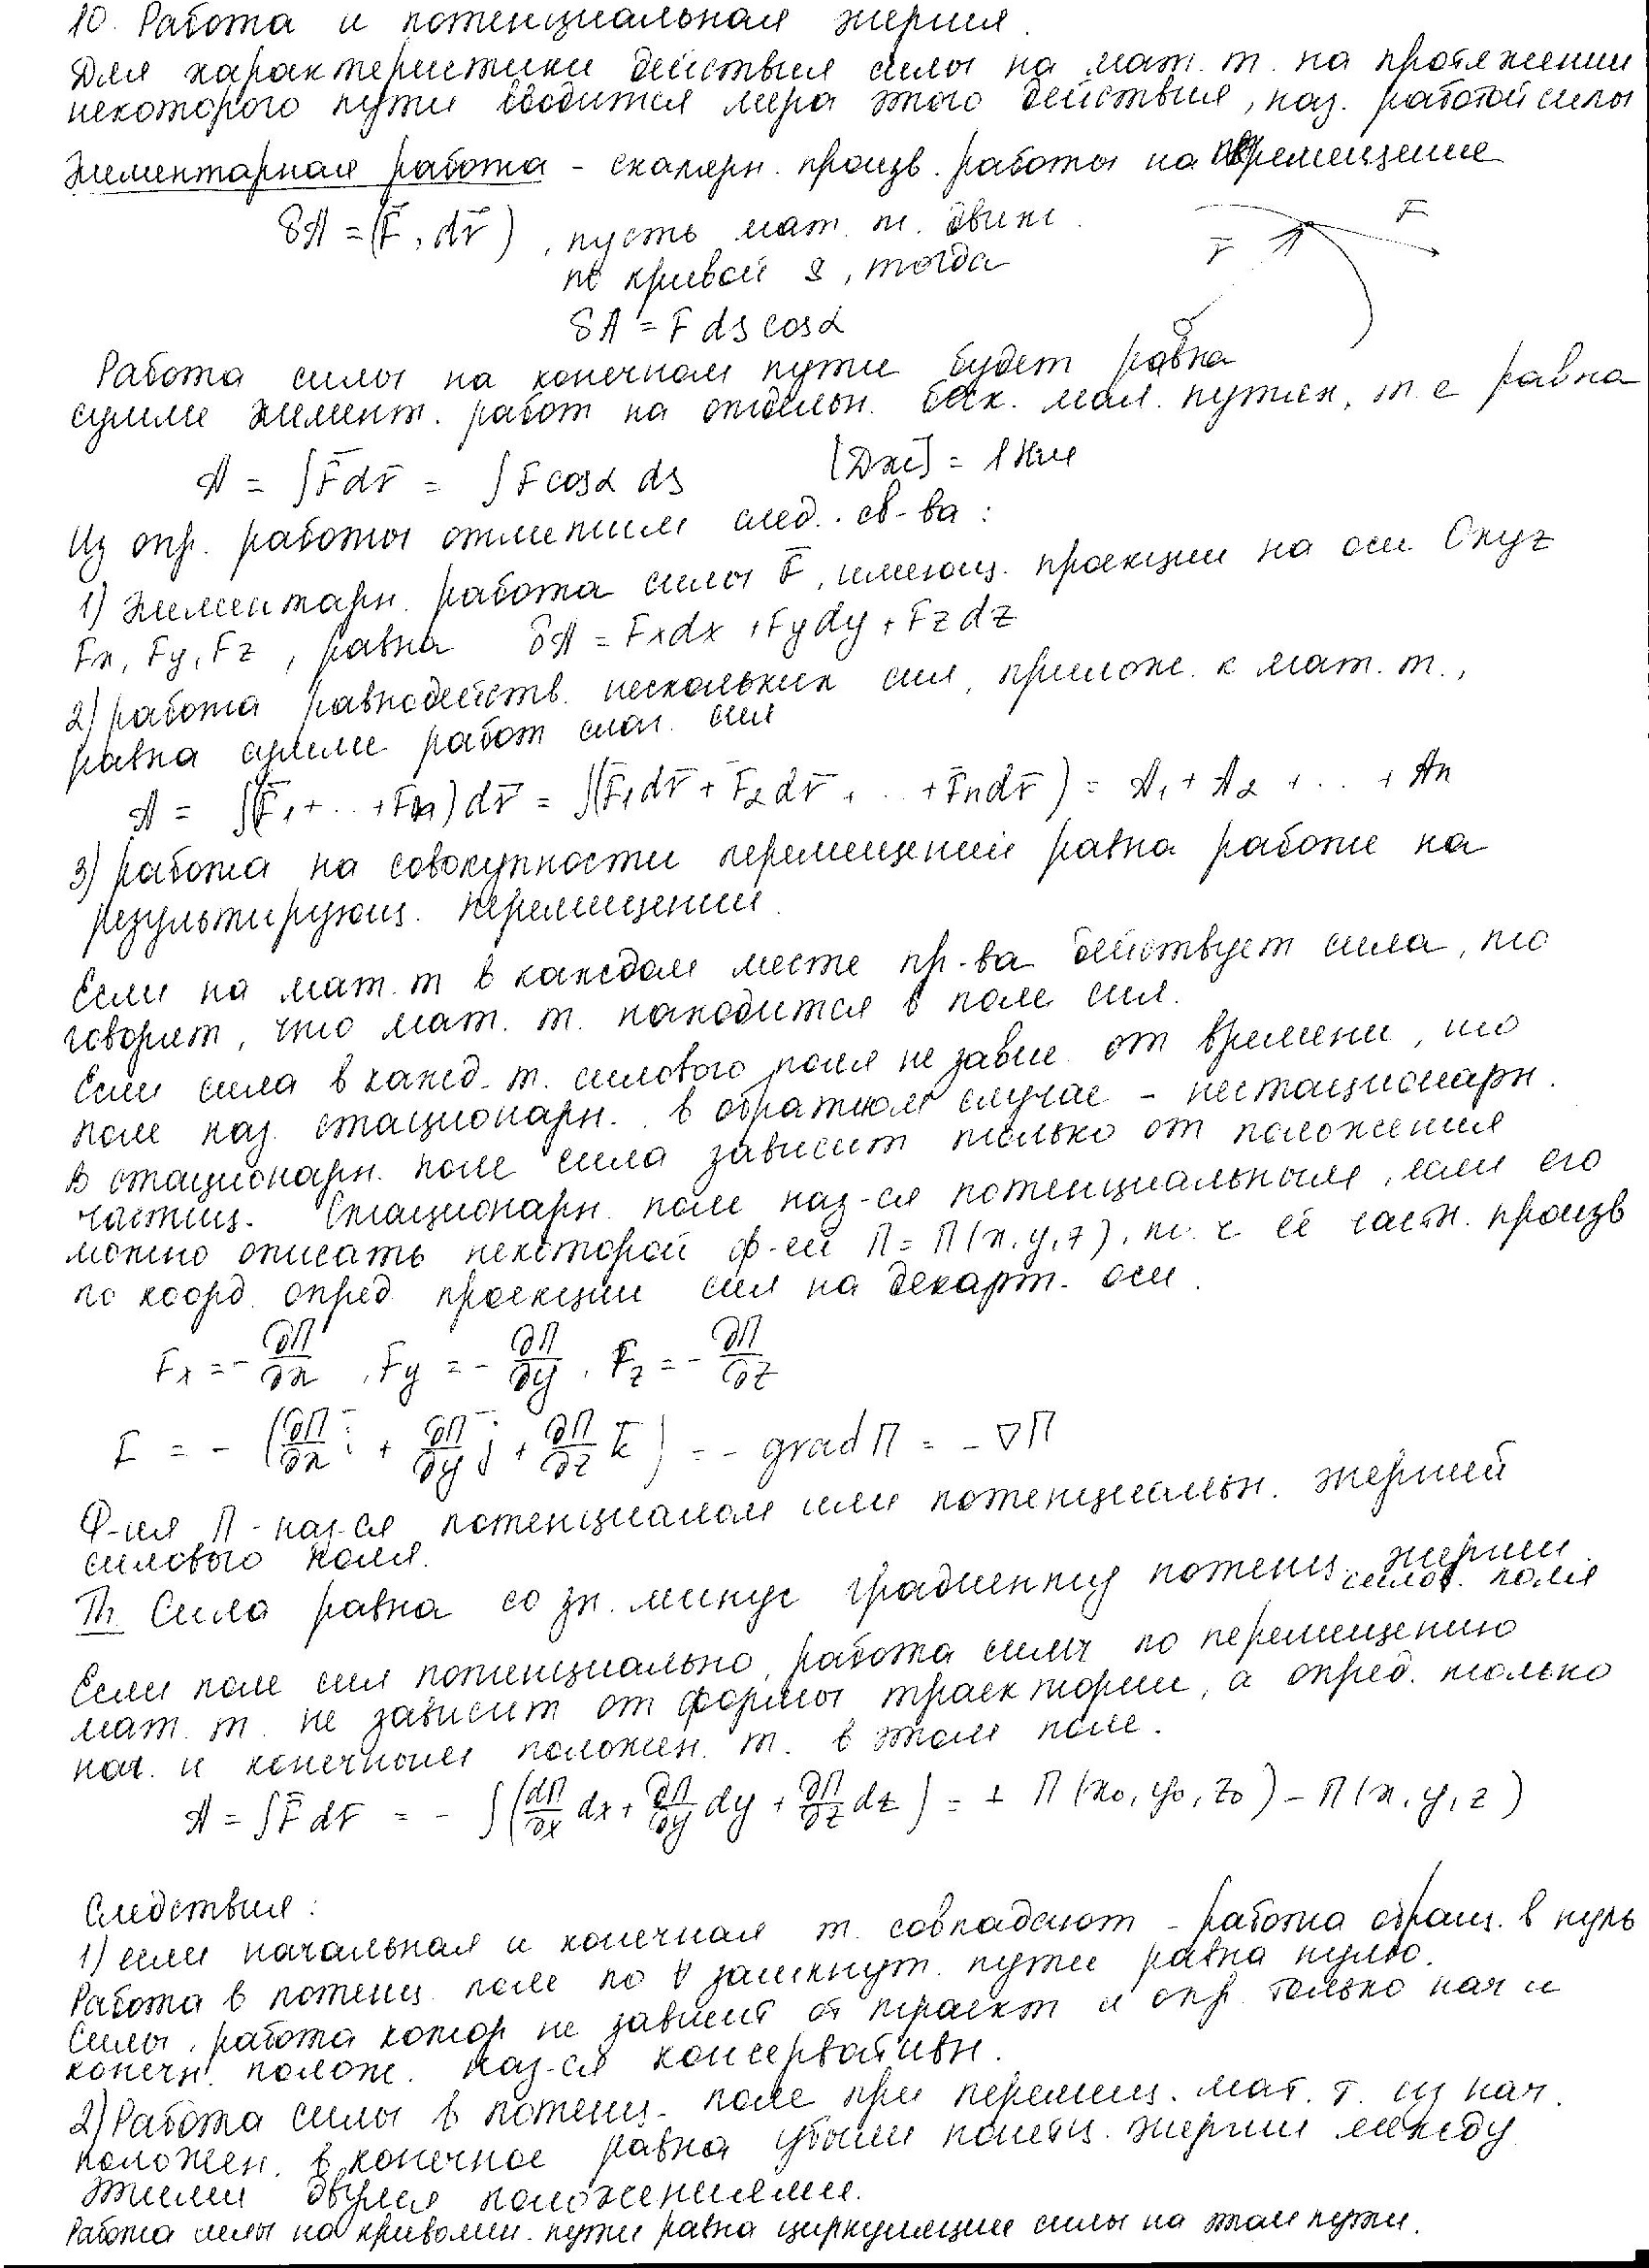 10. Работа и потенциальная энергия.
Для характеристики действия силы на мат. т. на протяжении
некоторого пути вводится мера этого действия, наз. работой силы
Элементарная работа - скалярн. произв. работы на перемещение
δA = (F̄, dr̄), пусть мат. т. движ.
по кривой S, тогда
F̄
r̄
δA = F ds cosα
Работа силы на конечном пути будет равна
сумме элемент. работ на отдельн. беск. мал. путях, т. е равна
A = ∫F̄dr̄ = ∫F cosα ds [Дж] = 1 Нм
Из опр. работы отметим след. св-ва:
1) Элементарн. работа силы F̄, имеющ. проекции на оси Oxyz
Fx, Fy, Fz, равна δA = Fxdx + Fydy + Fzdz
2) работа равнодейств. нескольких сил, прилож. к мат. т.,
равна сумме работ слаг. сил
A = ∫(F̄₁ + .. + F̄n)dr̄ = ∫(F̄₁dr̄ + F̄₂dr̄ + .. + F̄ndr̄) = A₁ + A₂ + .. + An
3) работа на совокупности перемещений равна работе на
результирующ. перемещении.
Если на мат. т в каждом месте пр-ва действует сила, то
говорят, что мат. т. находится в поле сил.
Если сила в кажд. т. силового поля не завис. от времени, то
поле наз. стационарн. в обратном случае - нестационарн.
В стационарн. поле сила зависит только от положения
частиц. Стационарн. поле наз-ся потенциальным, если его
можно описать некоторой ф-ей П = П(x, y, z), т. ч ее частн. произв
по коорд. опред. проекции сил на декарт. оси.
Fx = - ∂П/∂x, Fy = - ∂П/∂y, Fz = - ∂П/∂z
F = - (∂П/∂x ī + ∂П/∂y j̄ + ∂П/∂z k̄) = - grad П = - ∇П
Ф-ия П - наз-ся потенциалом или потенциальн. энергией
силового поля.
Th. Сила равна со зн. минус градиенту потенц. энергии
силов. поля
Если поле сил потенциально, работа силы по перемещению
мат. т. не зависит от формы траектории, а опред. только
нач. и конечным положен. т. в этом поле.
A = ∫F̄dr̄ = - ∫(dП/∂x dx + ∂П/∂y dy + ∂П/∂z dz) = + П(x₀, y₀, z₀) - П(x, y, z)
Следствия:
1) если начальная и конечная т. совпадают - работа обращ. в нуль
Работа в потенц. поле по ∀ замкнут. пути равна нулю.
Силы, работа котор не зависит от траект и опр. только нач и
конечн. полож. наз-ся консервативн.
2) Работа силы в потенц. поле при перемещ. мат. т. из нач.
положен. в конечное равна убыли потенц. энергии между
этими двумя положениями.
Работа силы на криволин. пути равна циркуляции силы на этом пути.